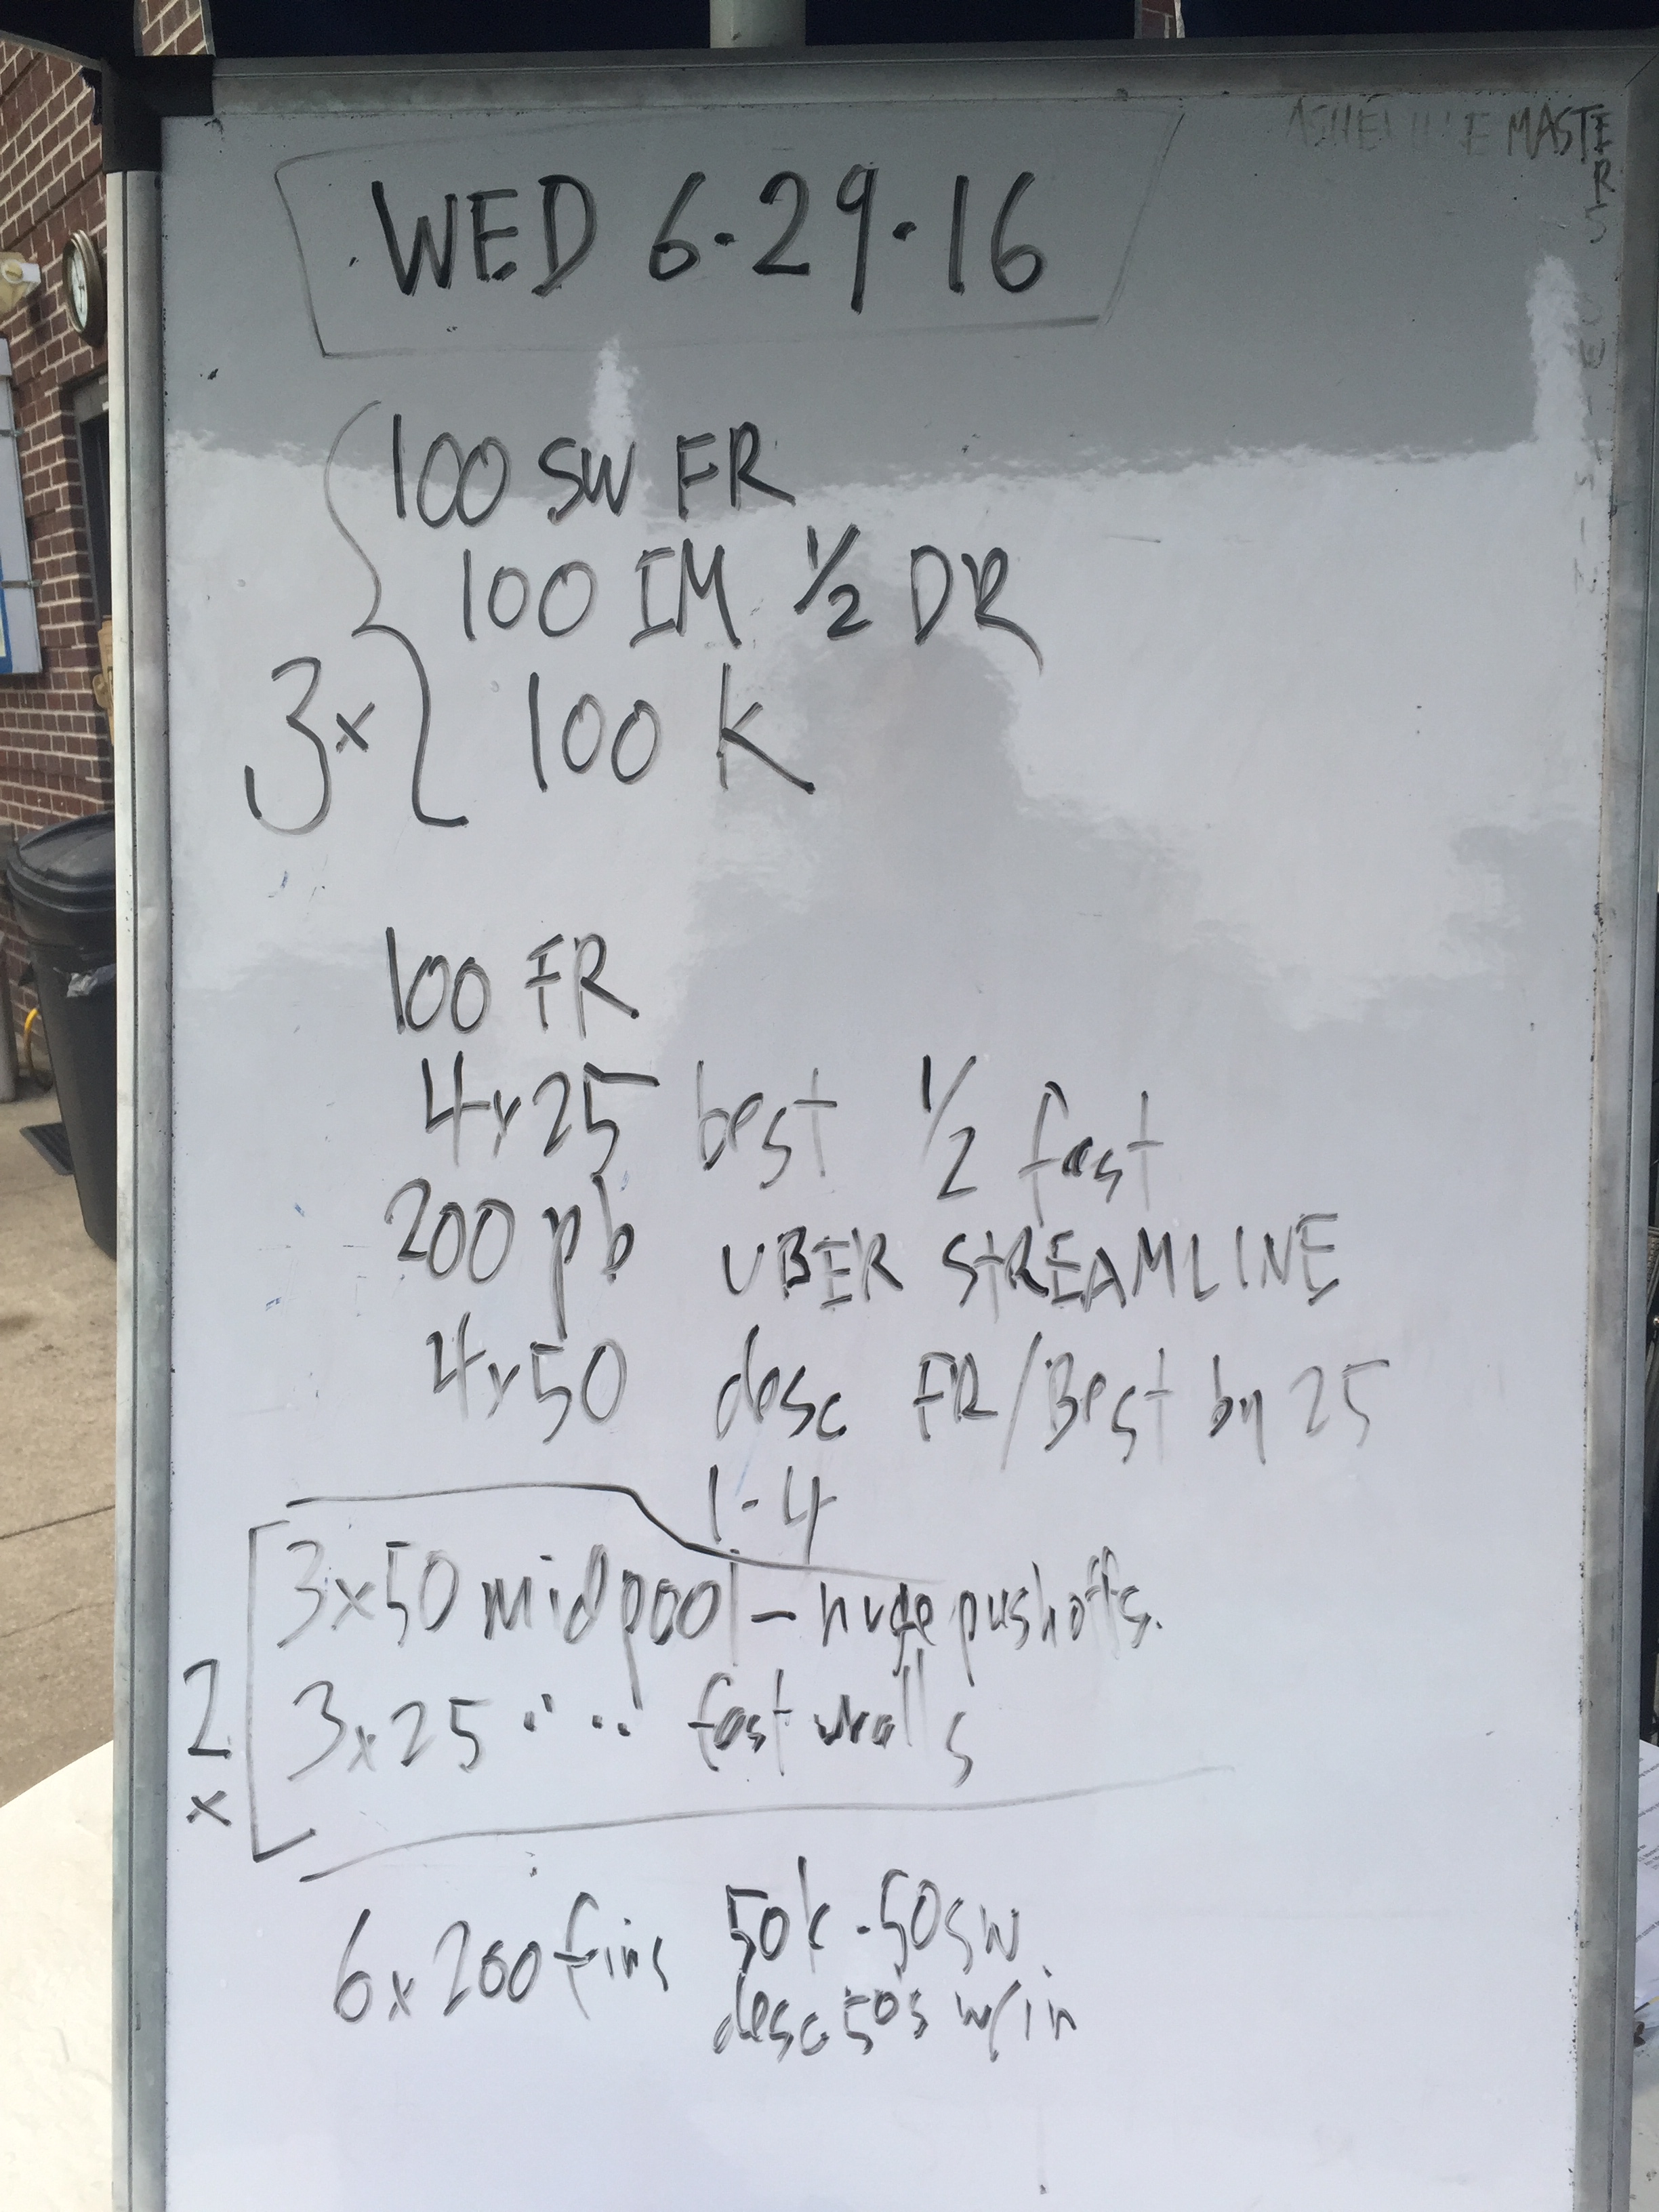 ASHEVILLE MASTERS
WED 6·29·16
100 SW FR
100 IM 1/2 DR
3x
100 K
100 FR
4x25 best 1/2 fast
200 pb UBER STREAMLINE
4x50 desc FR/Best by 25
1-4
3x50 midpool - huge pushoffs.
2x
3x25 " " fast walls
6x200 fins 50k-50sw
desc 50s w/in